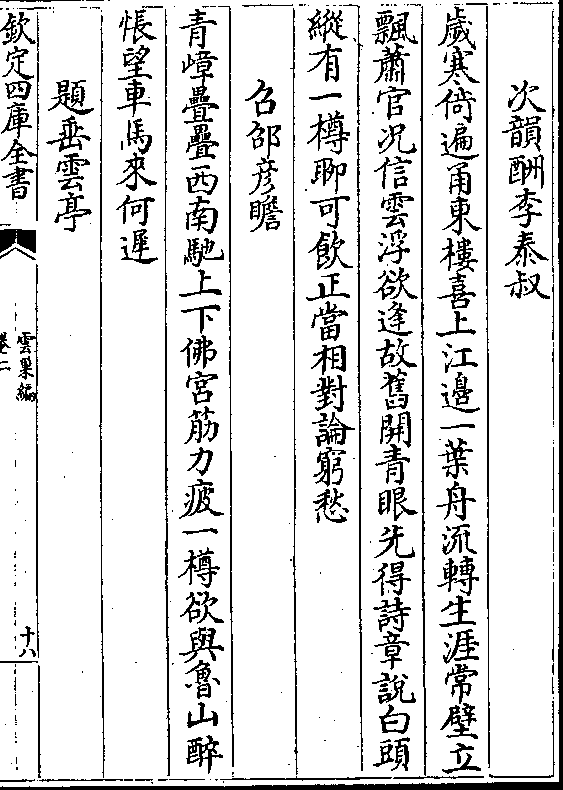 次韻酬李泰叔
歲寒倚遍甬東樓喜上江邊一葉舟流轉生涯常壁立
飄蕭官况信雲浮欲逢故舊開青眼先得詩章說白頭
縱有一樽聊可飲正當相對論窮愁
召邵彦瞻
青嶂疊疊西南馳上下佛宮筋力疲一樽欲與魯山醉
悵望車馬來何遲
題垂雲亭
欽定四庫全書
雲巢編
卷二
十八